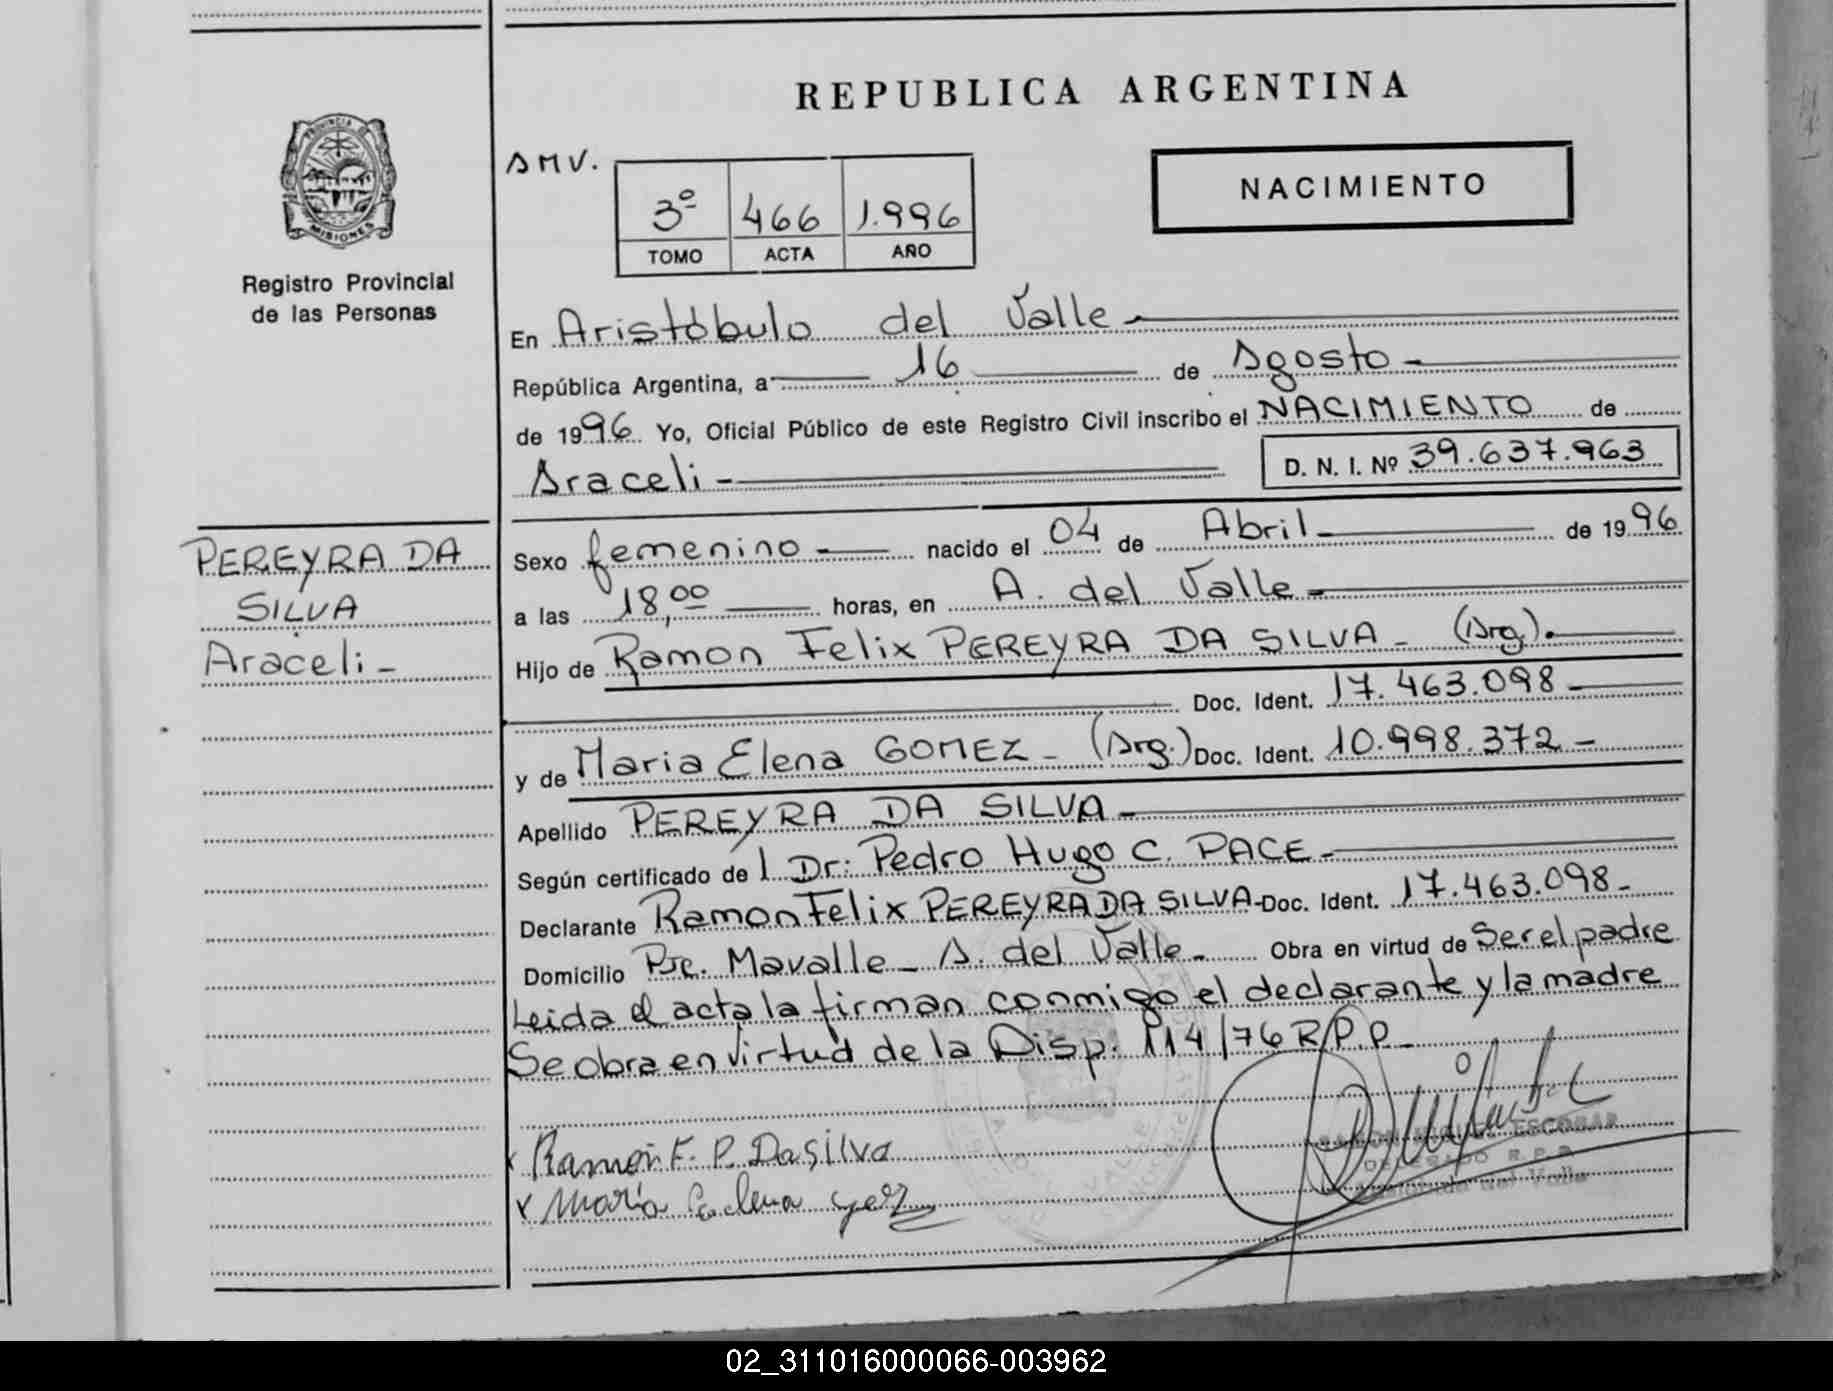 REPUBLICA ARGENTINA
PROVINCIA DE
MISIONES
Registro Provincial
de las Personas
AMV.
3º 466 1.996
TOMO ACTA AÑO
NACIMIENTO
En Aristóbulo del Valle -
República Argentina, a 16 de Agosto -
de 1996 Yo, Oficial Público de este Registro Civil inscribo el NACIMIENTO de
Araceli -
D. N. I. Nº 39.637.963
PEREYRA DA
SILVA
Araceli -
Sexo femenino - nacido el 04 de Abril - de 1996
a las 18,00 horas, en A. del Valle -
Hijo de Ramon Felix PEREYRA DA SILVA - (Arg).
Doc. Ident. 17.463.098 -
y de Maria Elena GOMEZ - (Arg.) Doc. Ident. 10.998.372 -
Apellido PEREYRA DA SILVA -
Según certificado de l Dr: Pedro Hugo C. PACE -
Declarante Ramon Felix PEREYRA DA SILVA - Doc. Ident. 17.463.098 -
Domicilio Pje. Mavalle - A. del Valle - Obra en virtud de Ser el padre
Leida el acta la firman conmigo el declarante y la madre
Se obra en virtud de la Disp. 114/76 R.P.P. -
x Ramón F. P. Dasilva
x María
RAMON MIGUEL ESCOBAR
DELEGADO R.P.P.
Aristóbulo del Valle
02_311016000066-003962